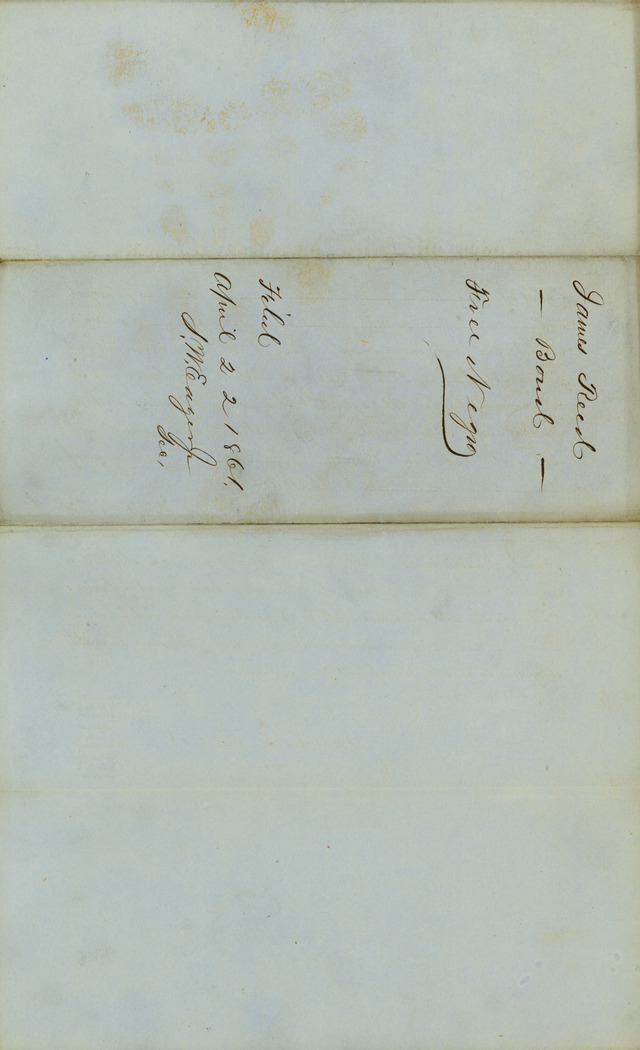 James Reed
— Bond —
Free Negro
Filed
April 22 1861.
S. W. Eager Jr